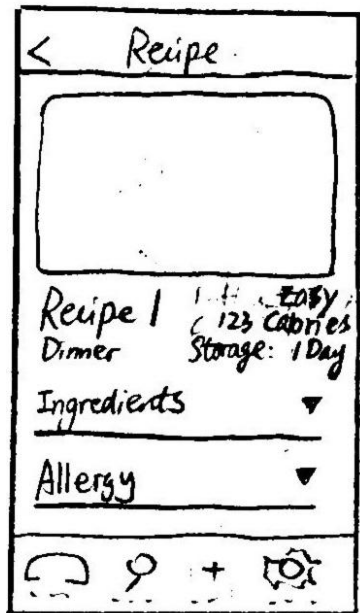 < Recipe
Recipe 1
Dinner
Easy
123 Calories
Storage: 1 Day
Ingredients
Allergy
+